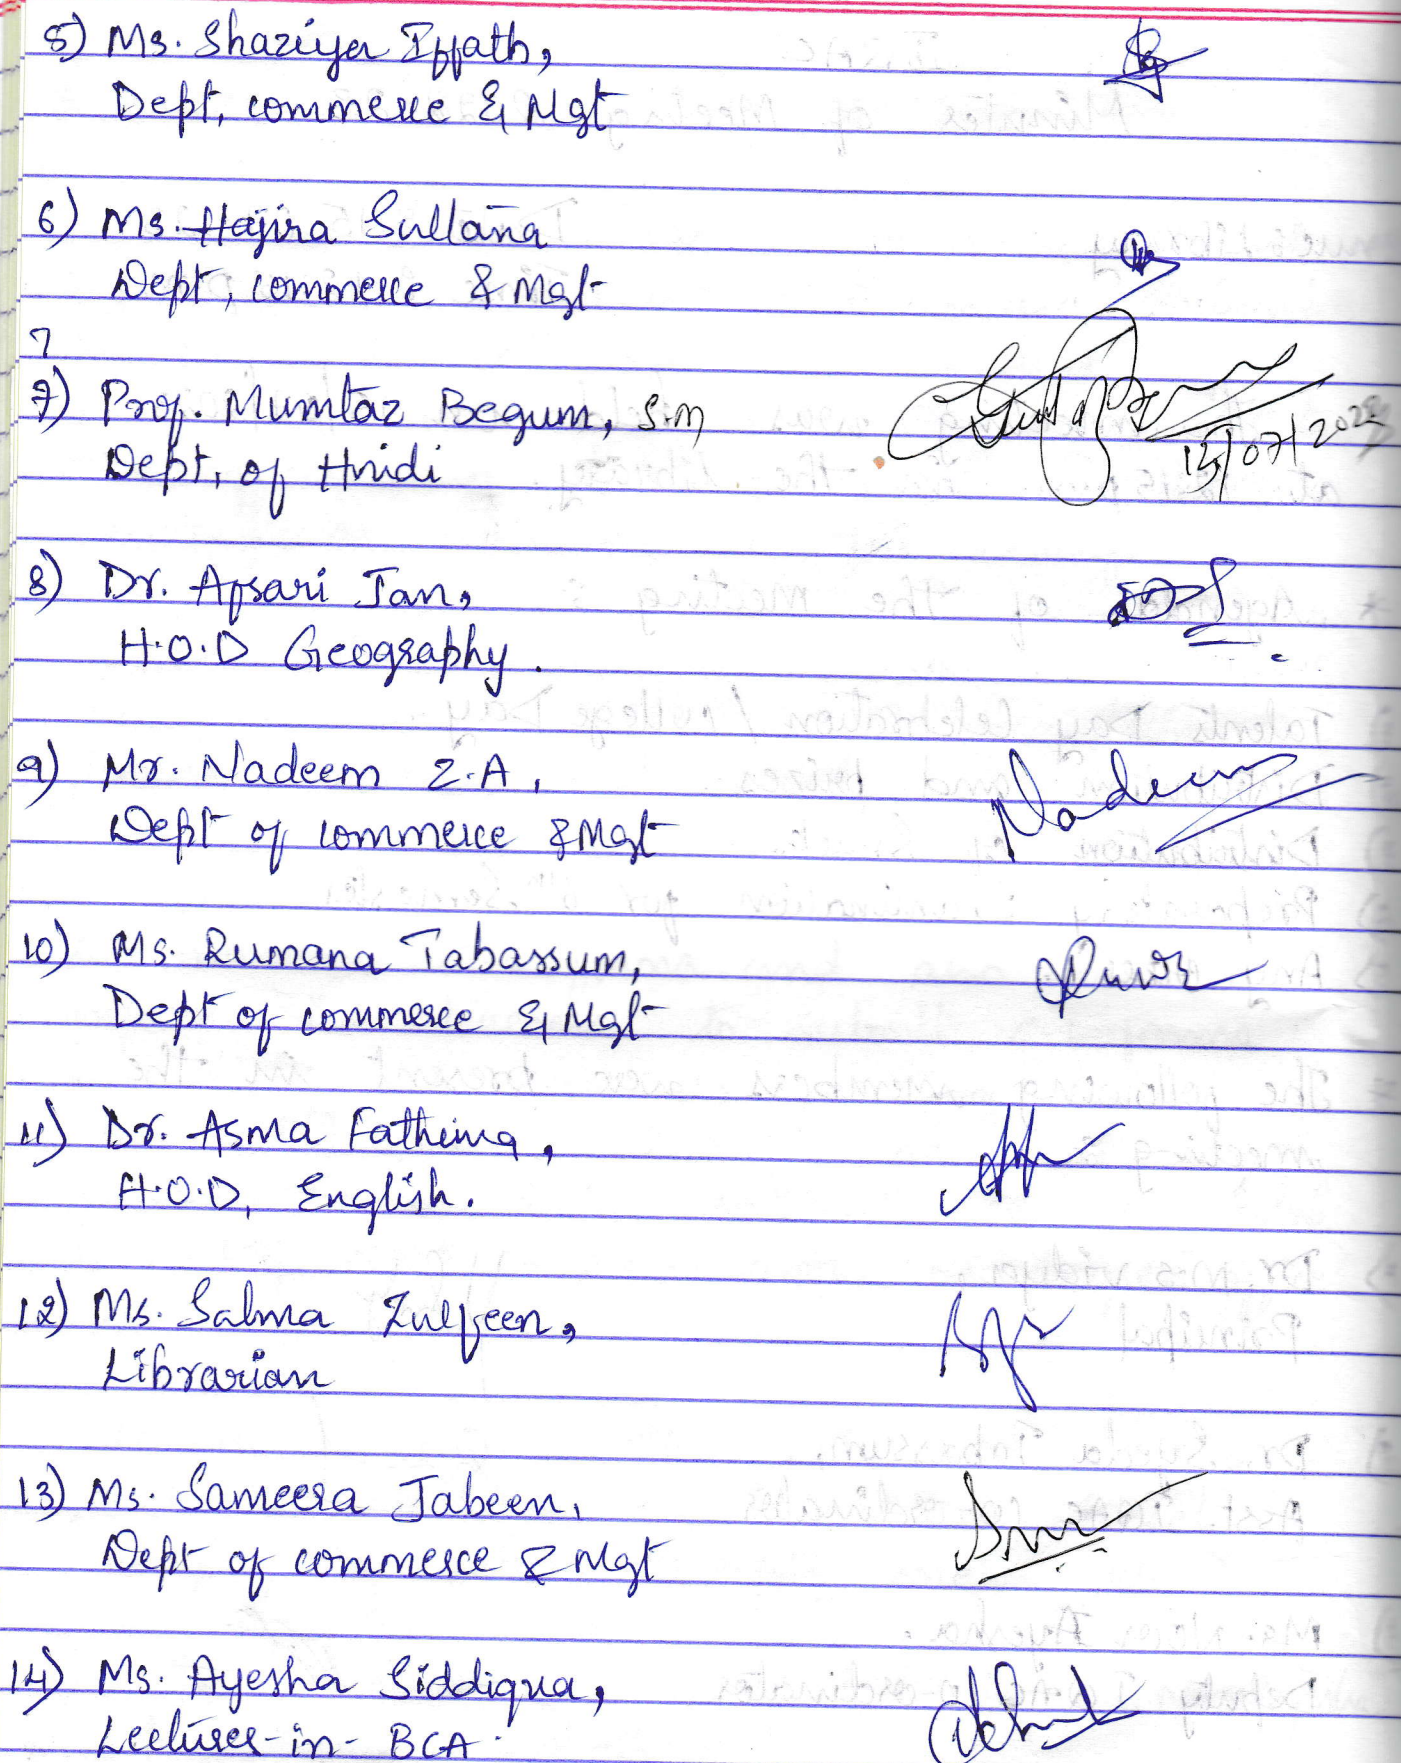 5) Ms. Shaziya Iffath,
Dept, commerce & Mgt
6) Ms. Hajira Sultana
Dept, commerce & Mgt
7
7) Prof. Mumtaz Begum, S.M
Dept, of Hindi
15/07/2022
8) Dr. Afsari Jan,
H.O.D Geography.
9) Mr. Nadeem Z.A,
Nadeem
Dept of commerce & Mgt
10) Ms. Rumana Tabassum,
Dept of commerce & Mgt
11) Dr. Asma Fathima,
H.O.D, English.
12) Ms. Salma Zulfeen,
Librarian
13) Ms. Sameera Jabeen,
Dept of commerce & Mgt
14) Ms. Ayesha Siddiqua,
Lecturer-in-BCA.